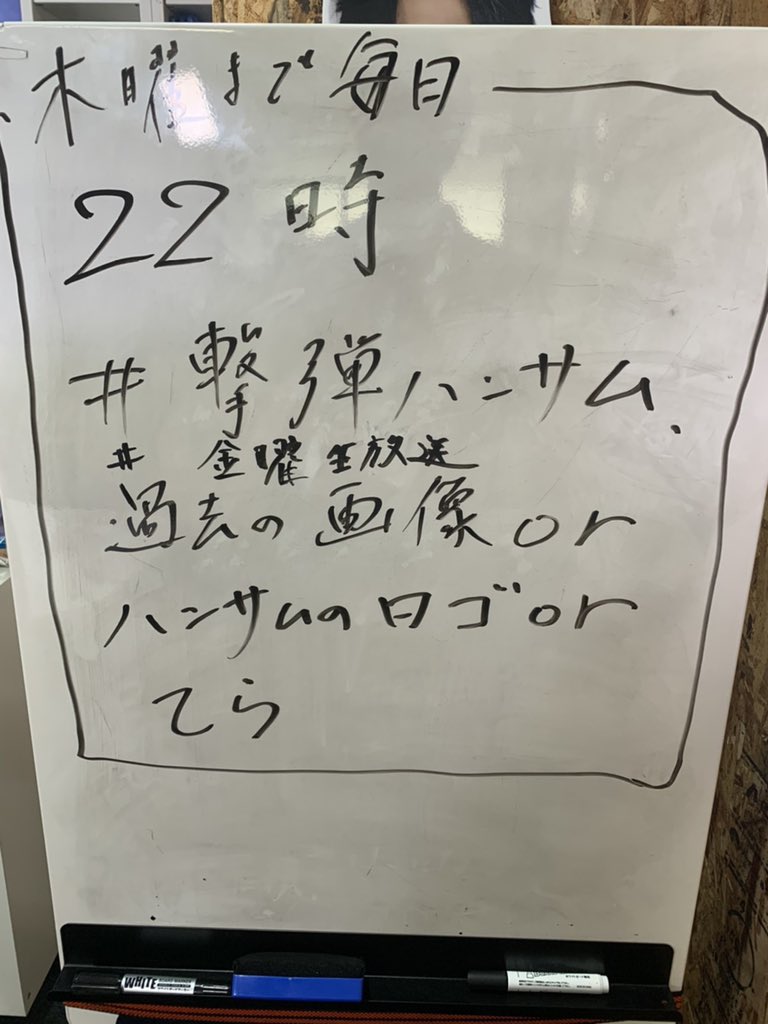 木曜まで毎日
22時
#撃弾ハンサム、
#金曜生放送
過去の画像or
ハンサムのロゴor
てら
WHITE
BOARD MARKER